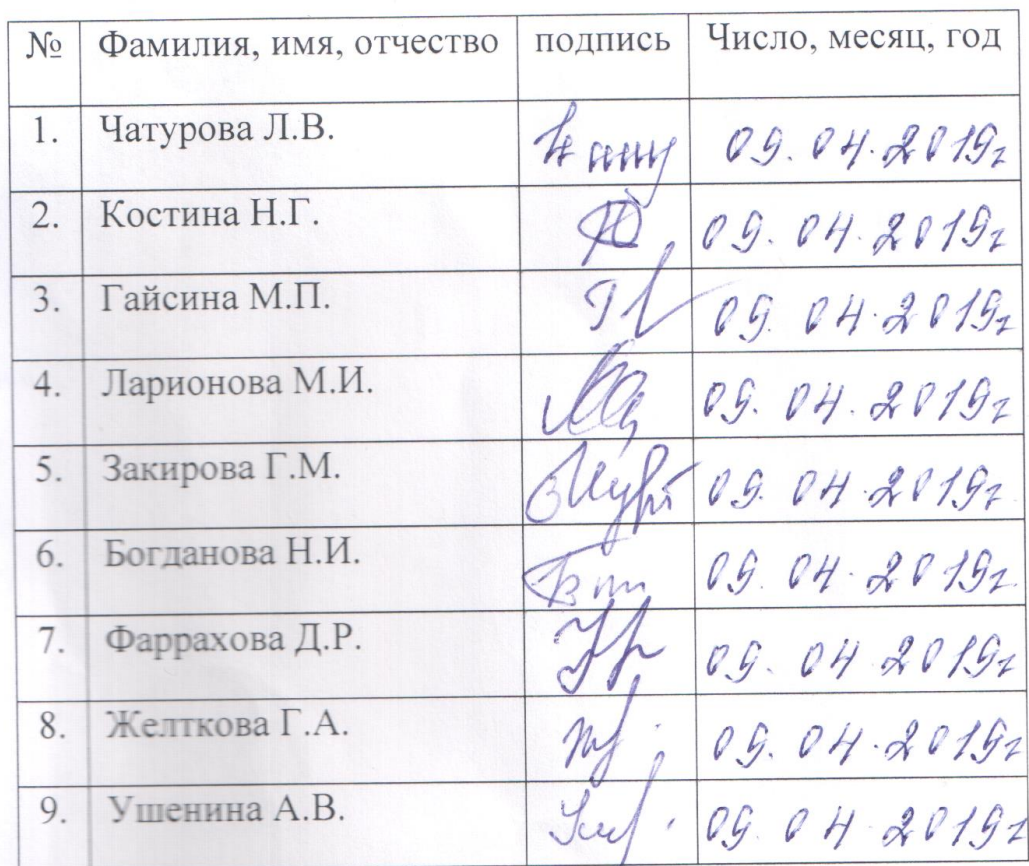 № Фамилия, имя, отчество подпись Число, месяц, год
1. Чатурова Л.В. 09.04.2019г
2. Костина Н.Г. 09.04.2019г
3. Гайсина М.П. 09.04.2019г
4. Ларионова М.И. 09.04.2019г
5. Закирова Г.М. 09.04.2019г
6. Богданова Н.И. 09.04.2019г
7. Фаррахова Д.Р. 09.04.2019г
8. Желткова Г.А. 09.04.2019г
9. Ушенина А.В. 09.04.2019г